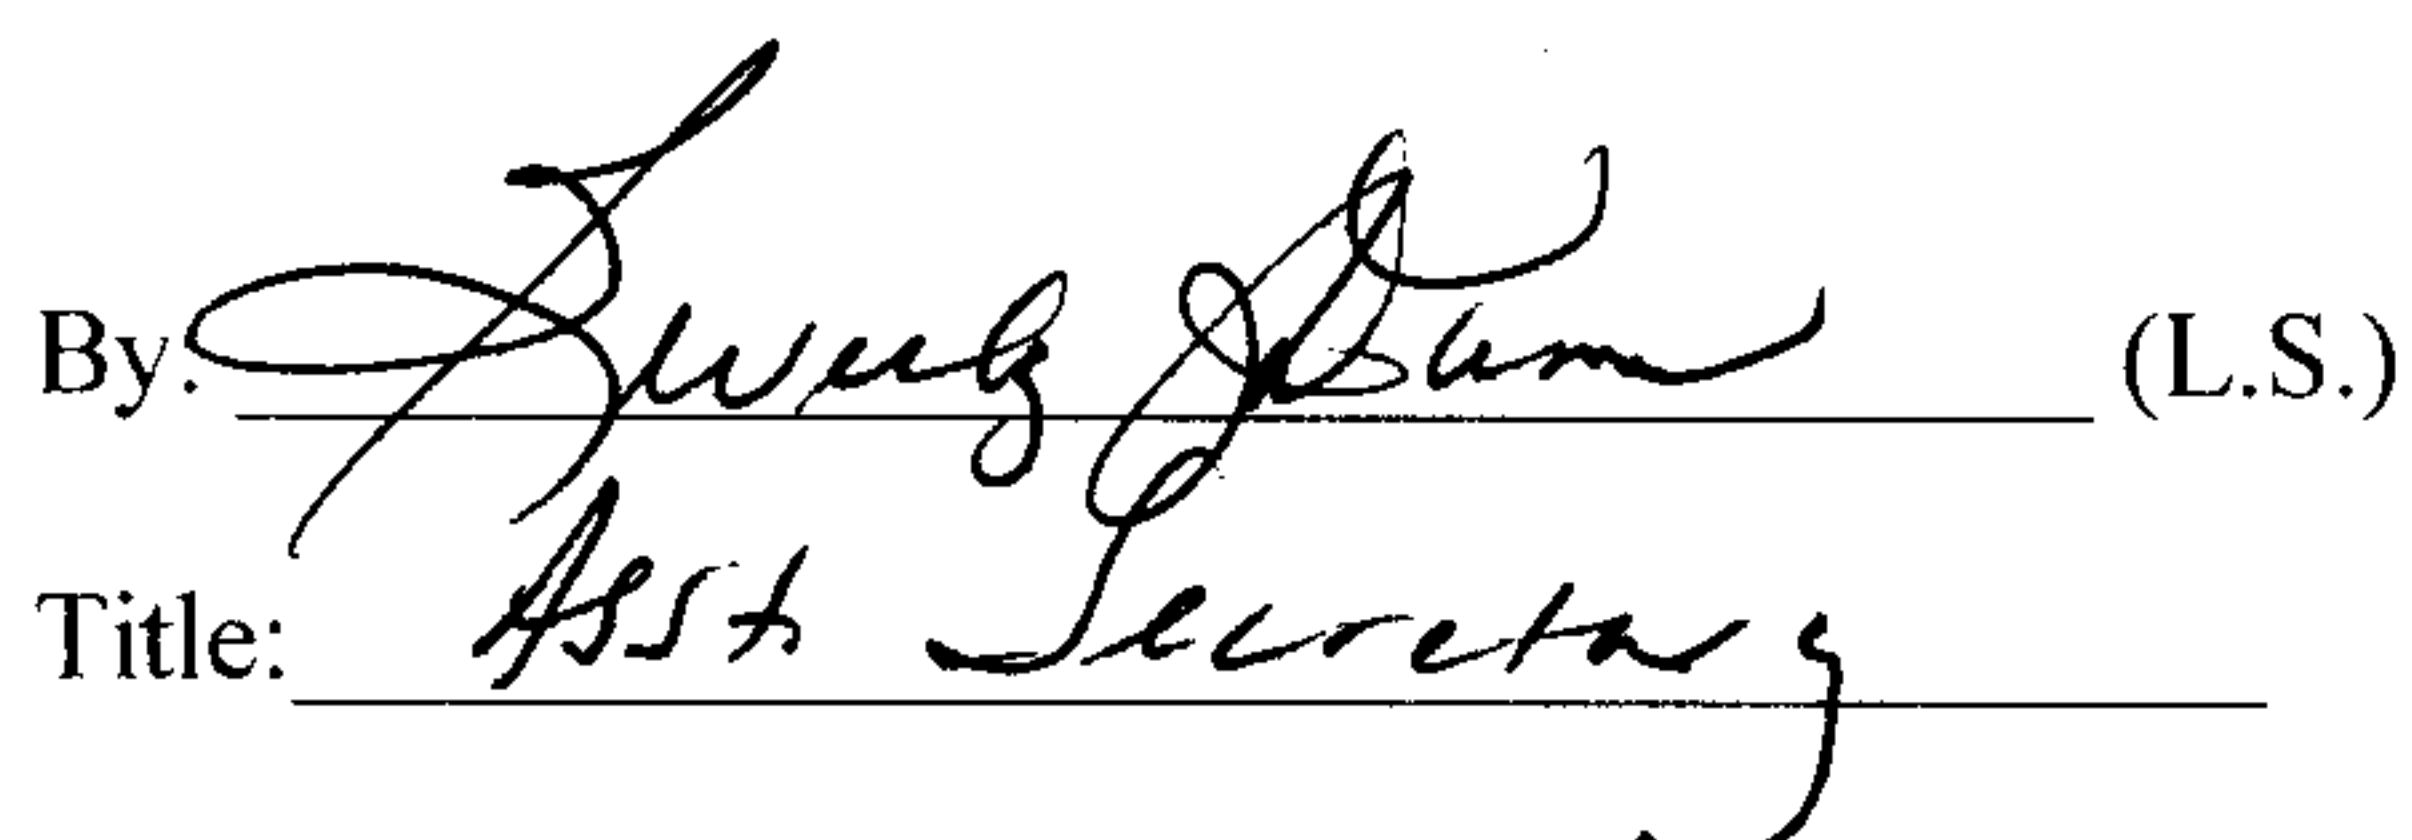 By: (L.S.)
Title: Asst Secretary